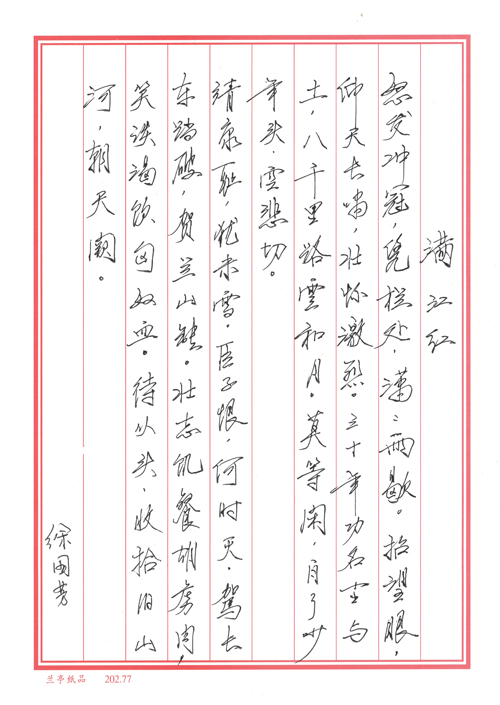 满江红
怒发冲冠，凭栏处，潇々雨歇。抬望眼，
仰天长啸，壮怀激烈。三十年功名尘与
土，八千里路雲和月。莫等闲，白了少
年头，空悲切。
靖康耻，犹未雪，臣子恨，何时灭，驾长
车踏破，贺兰山缺。壮志饥餐胡虏肉，
笑谈渴饮匈奴血。待从头，收拾旧山
河，朝天阙。
徐国芳
兰亭纸品 202.77